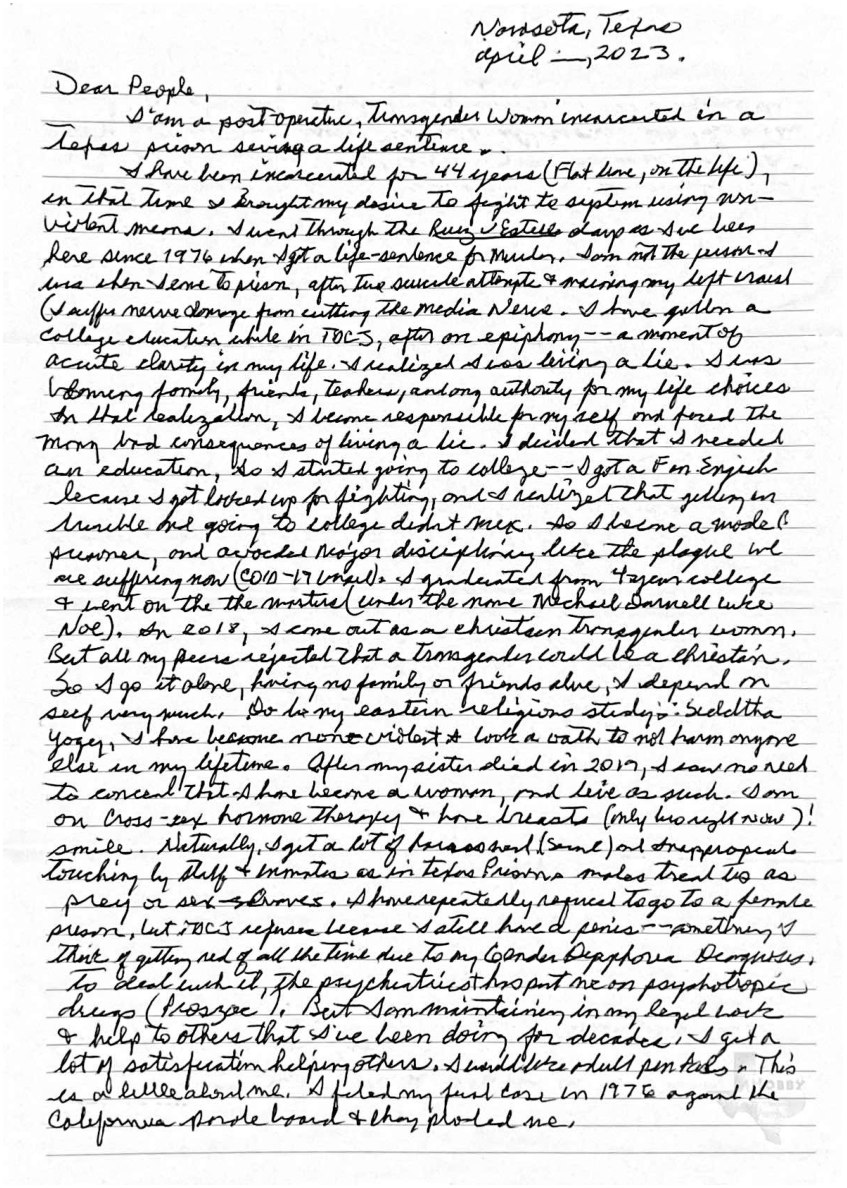 Navasota, Texas
April —, 2023.
Dear People,
I am a post-operative, Transgender Woman incarcerated in a
Texas prison serving a life sentence.
I have been incarcerated for 44 years (Flat time, on the life),
in that time I brought my desire to fight to system using non-
violent means. I went through the Ruiz v Estelle days as I've been
here since 1976 when I got a life-sentence for Murder. I am not the person I
was when I came to prison, after two suicide attempts & maiming my left wrist
(I suffer nerve damage from cutting the media Nerve. I have gotten a
college education while in TDCJ, after an epiphany -- a moment of
acute clarity in my life. I realized I was living a lie. I was
blaming family, friends, teachers, and any authority for my life choices
In that realization, I became responsible for my self and faced the
many bad consequences of living a lie. I decided that I needed
an education, So I started going to college -- I got a F in Engish
because I got locked up for fighting, and I realized that getting in
trouble and going to college didn't mix. So I became a model
prisoner, and avoided major disciplinary like the plague we
are suffering now (COID-17 ). I graduated from 4 year college
& went on the the masters (under the name Michael Darnell Luke
Noe). In 2018, I come out as a christian transgender woman.
But all my peers rejected that a transgender could be a christian.
So I go it alone, having no family or friends alive, I depend on
self very much. Do to my eastern religions study:
I have become non-violent & took a oath to not harm anyone
else in my lifetime. After my sister died in 2019, I saw no need
to conceal that I have become a woman, and live as such. I am
on cross-sex hormone therapy & have breasts (only two right now)!
smile. Naturally, I get a lot of harassment and
touching by staff & inmates as in Texas Prisons males treat us as
prey or sex-slaves. I have repeatedly request to go to a female
prison, but TDCJ refuses because I still have a penis -- something I
think of getting rid of all the time due to my Gender Diagnosis.
To deal with it, the psychiatrict has put me on psychotropic
drugs (Proszac). But I am maintaining in my legal work
& help to others that I've been doing for decades. I get a
lot of satisfaction helping others. I would like adult pen pals. This
is a little about me. I filed my first case in 1976 against the
California parole board & they paroled me.